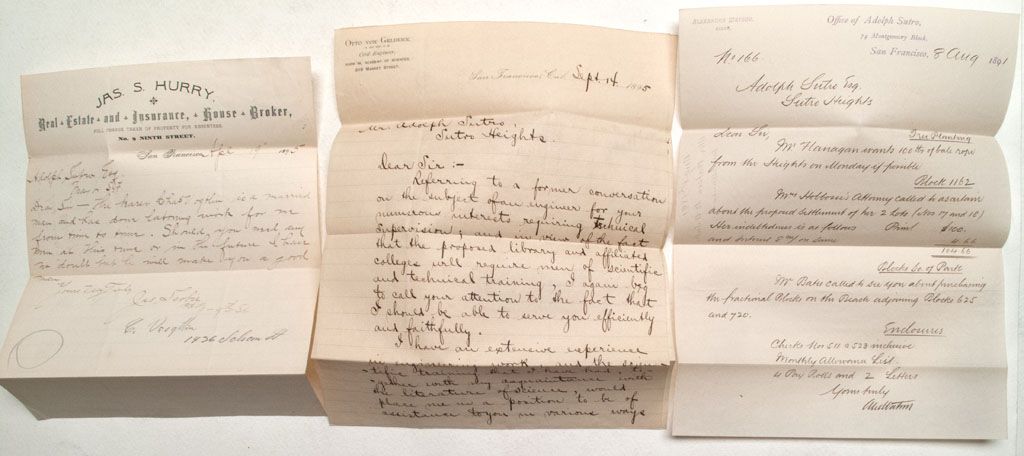 JAS. S. HURRY,
Real Estate and Insurance, House Broker,
FULL CHARGE TAKEN OF PROPERTY FOR ABSENTEES.
No. 9 NINTH STREET.
San Francisco, 1895
Adolph Sutro Esq.
Dear Sir — The bearer Chas. is a married
man and has done laboring work for me
from time to time. Should you want any
men at this time or in the future I have
no doubt but he will make you a good
man
Yours Very Truly
C. Vaughn
1426 Folsom St
OTTO VON GELDERN,
Civil Engineer,
819 MARKET STREET.
San Francisco, Cal. Sept. 14 1895
Mr. Adolph Sutro,
Sutro Heights.
Dear Sir :-
Referring to a former conversation
on the subject of an engineer for your
numerous interests requiring technical
supervision; and in view of the fact
that the proposed library and affiliated
colleges will require men of scientific
and technical training, I again beg
to call your attention to the fact that
I should be able to serve you efficiently
and faithfully.
I have an extensive experience
in engineering work, and the scien-
tific training that I have had to-
gether with my acquaintance with
the literature of science would
place me in a position to be of
assistance to you in various ways
Office of Adolph Sutro,
74 Montgomery Block,
San Francisco, 8 Aug 1891
No. 166
Adolph Sutro Esq.
Sutro Heights
Dear Sir, Tree Planting
Mr Flanagan wants 100 lbs of bale rope
from the Heights on Monday if possible
Block 1162
Mrs Attorney called to ascertain
about the proposed settlement of her 2 Lots (Nos 17 and 18)
Her indebtedness is as follows Prin! $100.
and interest on same 4.66
104.66
Blocks So of Park
Mr Bates called to see you about purchasing
the fractional Blocks on the Beach adjoining Blocks 625
and 720.
Enclosures
Checks Nos 511 a 523 inclusive
Monthly Allowance List.
4 Pay Rolls and 2 Letters
Yours truly